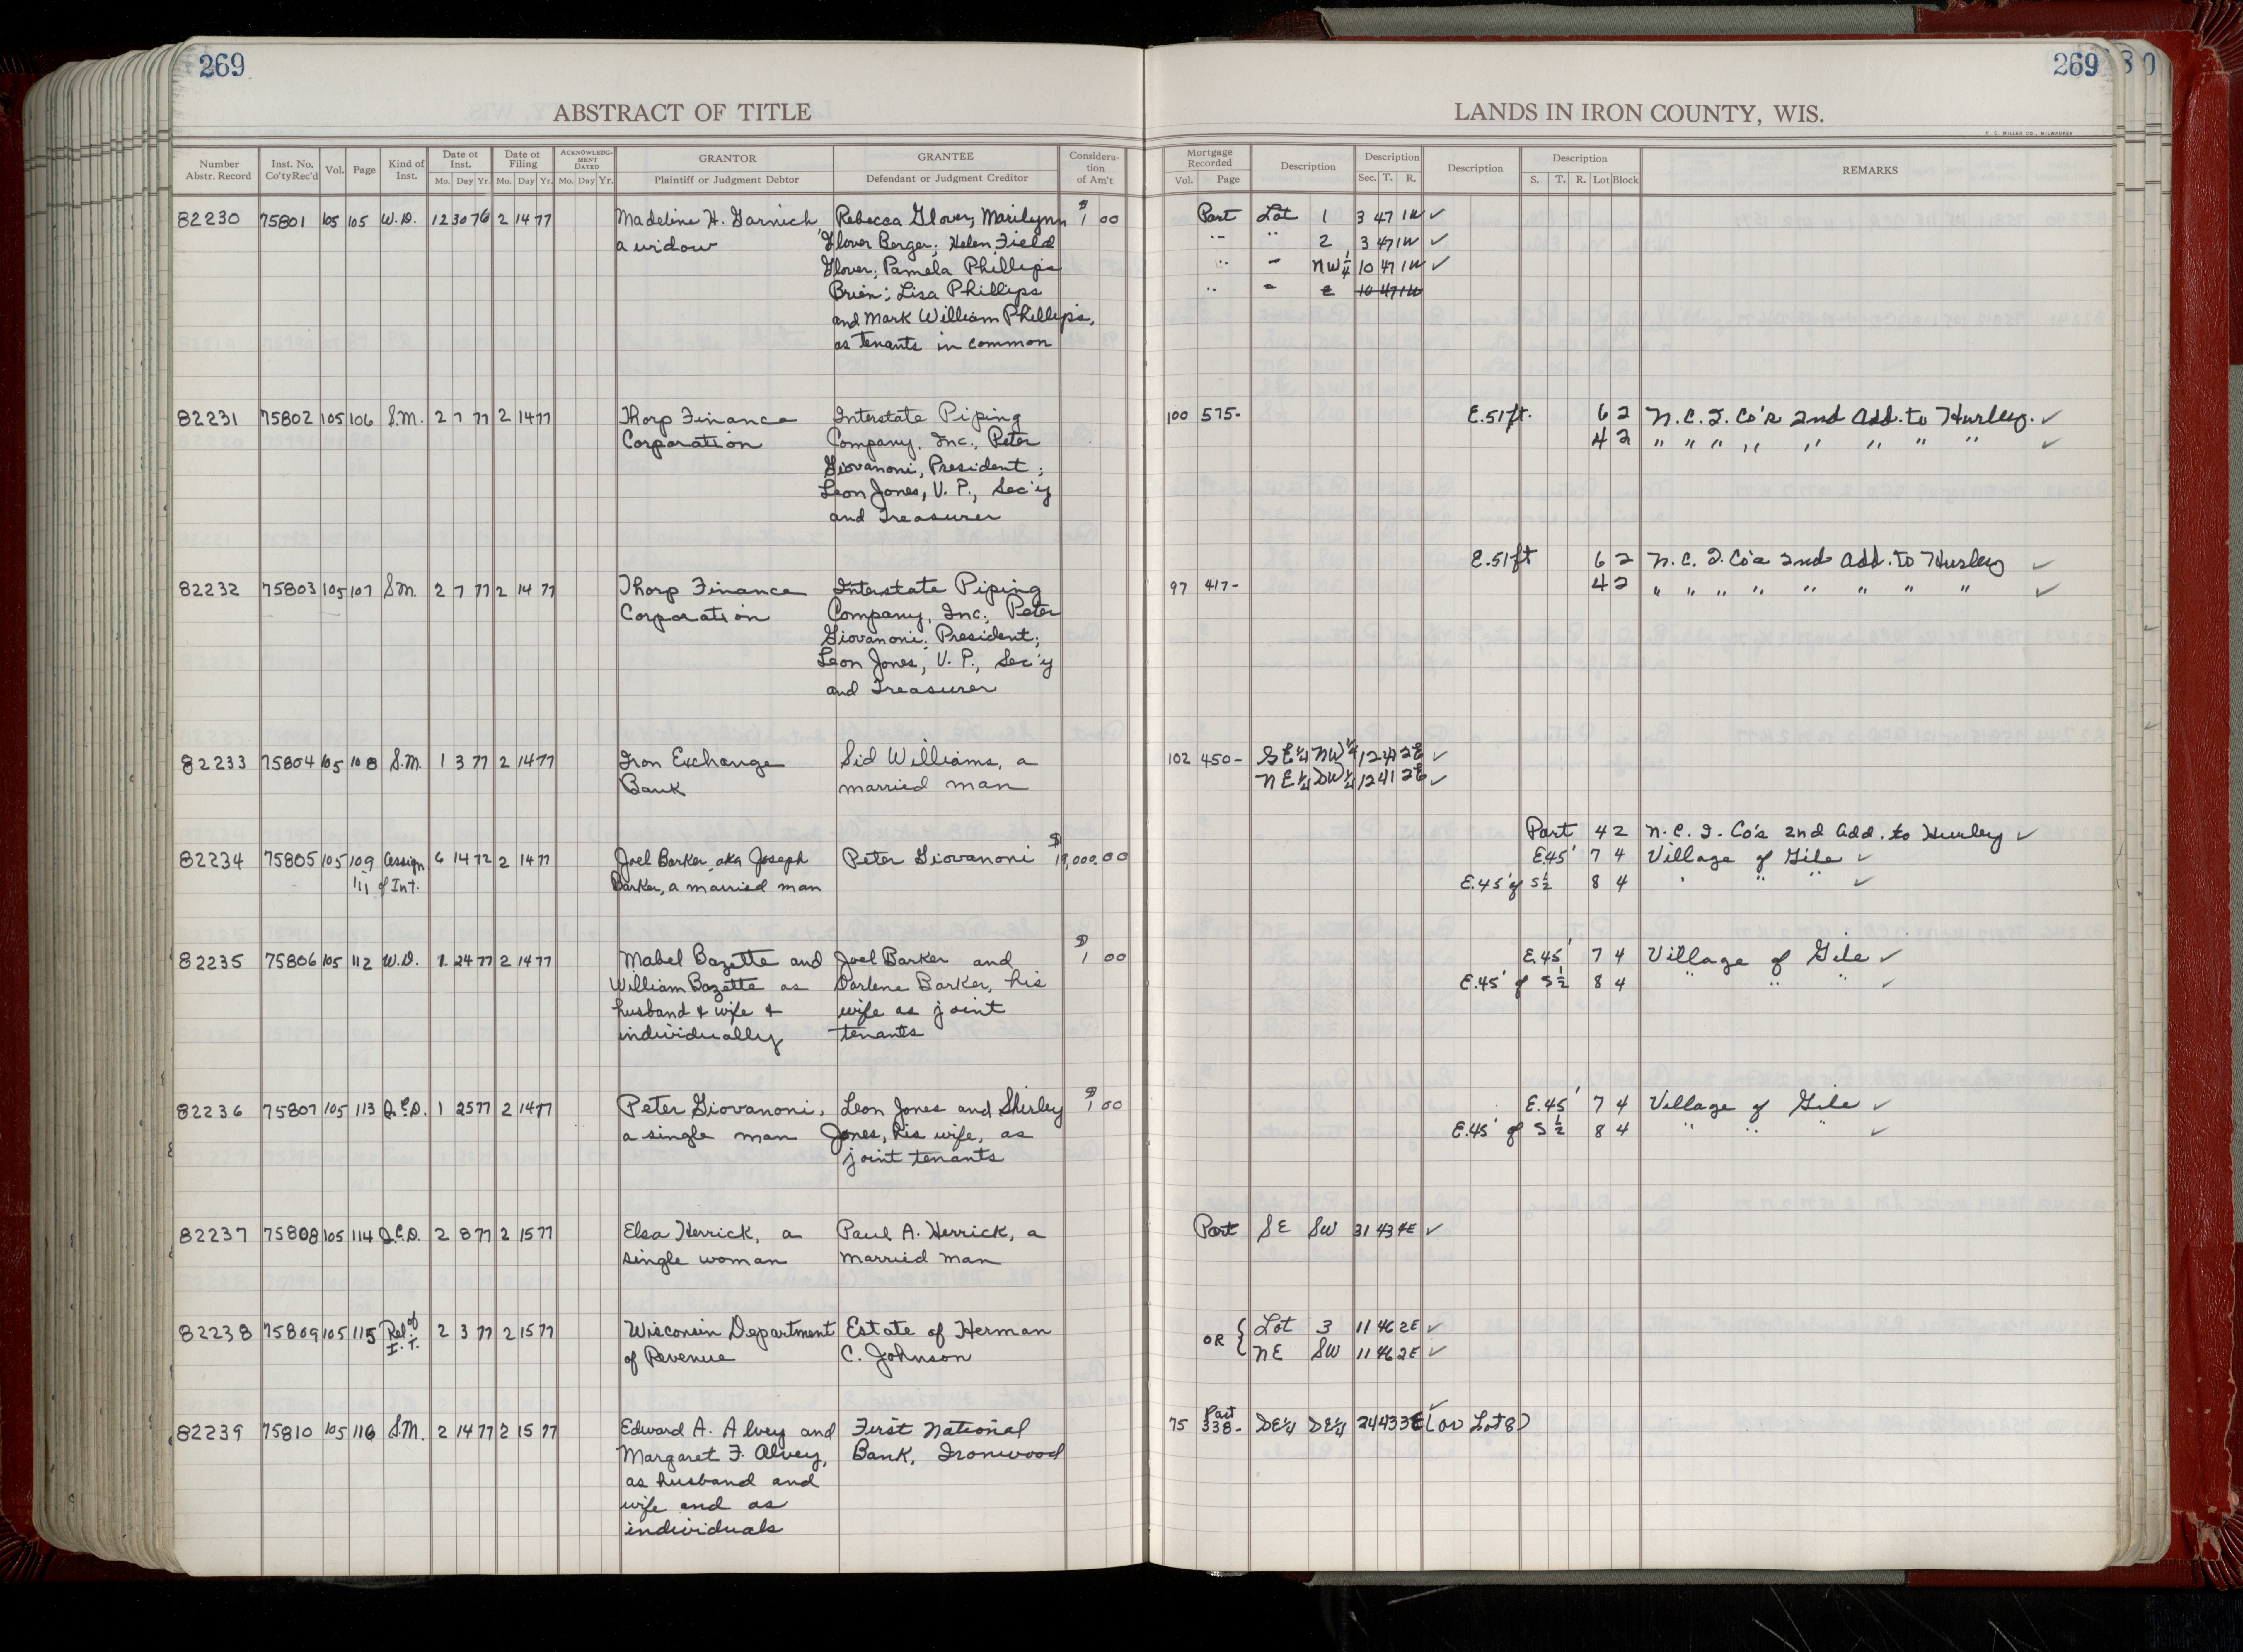 269
269
ABSTRACT OF TITLE
LANDS IN IRON COUNTY, WIS.
H. C. MILLER CO., MILWAUKEE
Number Abstr. Record Inst. No. Co'ty Rec'd Vol. Page Kind of Inst. Date of Inst. Mo. Day Yr. Date of Filing Mo. Day Yr. ACKNOWLEDGMENT DATED Mo. Day Yr. GRANTOR Plaintiff or Judgment Debtor GRANTEE Defendant or Judgment Creditor Consideration of Am't Mortgage Recorded Vol. Page Description Description Sec. T. R. Description Description S. T. R. Lot Block REMARKS
82230 75801 105 105 W.D. 12 30 76 2 14 77 Madeline H. Garnich, Rebecca Glover; Marilynn $1 00 Part Lot 1 3 47 1W ✓
a widow Glover Berger; Helen Field " " 2 3 47 1W ✓
Glover; Pamela Phillips " " NW¼ 10 47 1W ✓
Brien; Lisa Phillips " " 2 10 47 1W
and Mark William Phillips,
as tenants in common
82231 75802 105 106 S.M. 2 7 77 2 14 77 Thorp Finance Interstate Piping 100 575- E.51 ft. 6 2 N.C.I. Co's 2nd Add. to Hurley. ✓
Corporation Company, Inc., Peter 4 2 " " " " " " " " ✓
Giovanoni, President;
Leon Jones, V.P., Sec'y
and Treasurer
E.51 ft 6 2 N.C.I. Co's 2nd Add. to Hurley ✓
82232 75803 105 107 S.M. 2 7 77 2 14 77 Thorp Finance Interstate Piping 97 417- 4 2 " " " " " " " " ✓
Corporation Company, Inc; Peter
Giovanoni, President;
Leon Jones, V.P., Sec'y
and Treasurer
82233 75804 105 108 S.M. 1 3 77 2 14 77 Iron Exchange Sid Williams, a 102 450- SE¼ NW¼ 12 41 2E ✓
Bank married man NE¼ SW¼ 12 41 2E ✓
Part 4 2 N.C.I. Co's 2nd Add. to Hurley ✓
82234 75805 105 109 Assign 6 14 72 2 14 77 Joel Barker, aka Joseph Peter Giovanoni $19,000.00 E.45' 7 4 Village of Gile ✓
111 of Int. Barker, a married man E.45' of S½ 8 4 " " " ✓
82235 75806 105 112 W.D. 1 24 77 2 14 77 Mabel Bazette and Joel Barker and $1 00 E.45' 7 4 Village of Gile ✓
William Bazette as Darlene Barker, his E.45' of S½ 8 4 " " ✓
husband & wife & wife as joint
individually tenants
82236 75807 105 113 Q.C.D. 1 25 77 2 14 77 Peter Giovanoni, Leon Jones and Shirley $1 00 E.45' 7 4 Village of Gile ✓
a single man Jones, his wife, as E.45' of S½ 8 4 " " " ✓
joint tenants
82237 75808 105 114 Q.C.D. 2 8 77 2 15 77 Elsa Herrick, a Paul A. Herrick, a Part SE SW 31 43 4E ✓
single woman married man
82238 75809 105 115 Rel. of I.T. 2 3 77 2 15 77 Wisconsin Department Estate of Herman OR { Lot 3 11 46 2E ✓
of Revenue C. Johnson NE SW 11 46 2E ✓
82239 75810 105 116 S.M. 2 14 77 2 15 77 Edward A. Alvey and First National 75 338- Part SE¼ SE¼ 24 43 3E (or Lot 8) ✓
Margaret F. Alvey, Bank, Ironwood
as husband and
wife and as
individuals